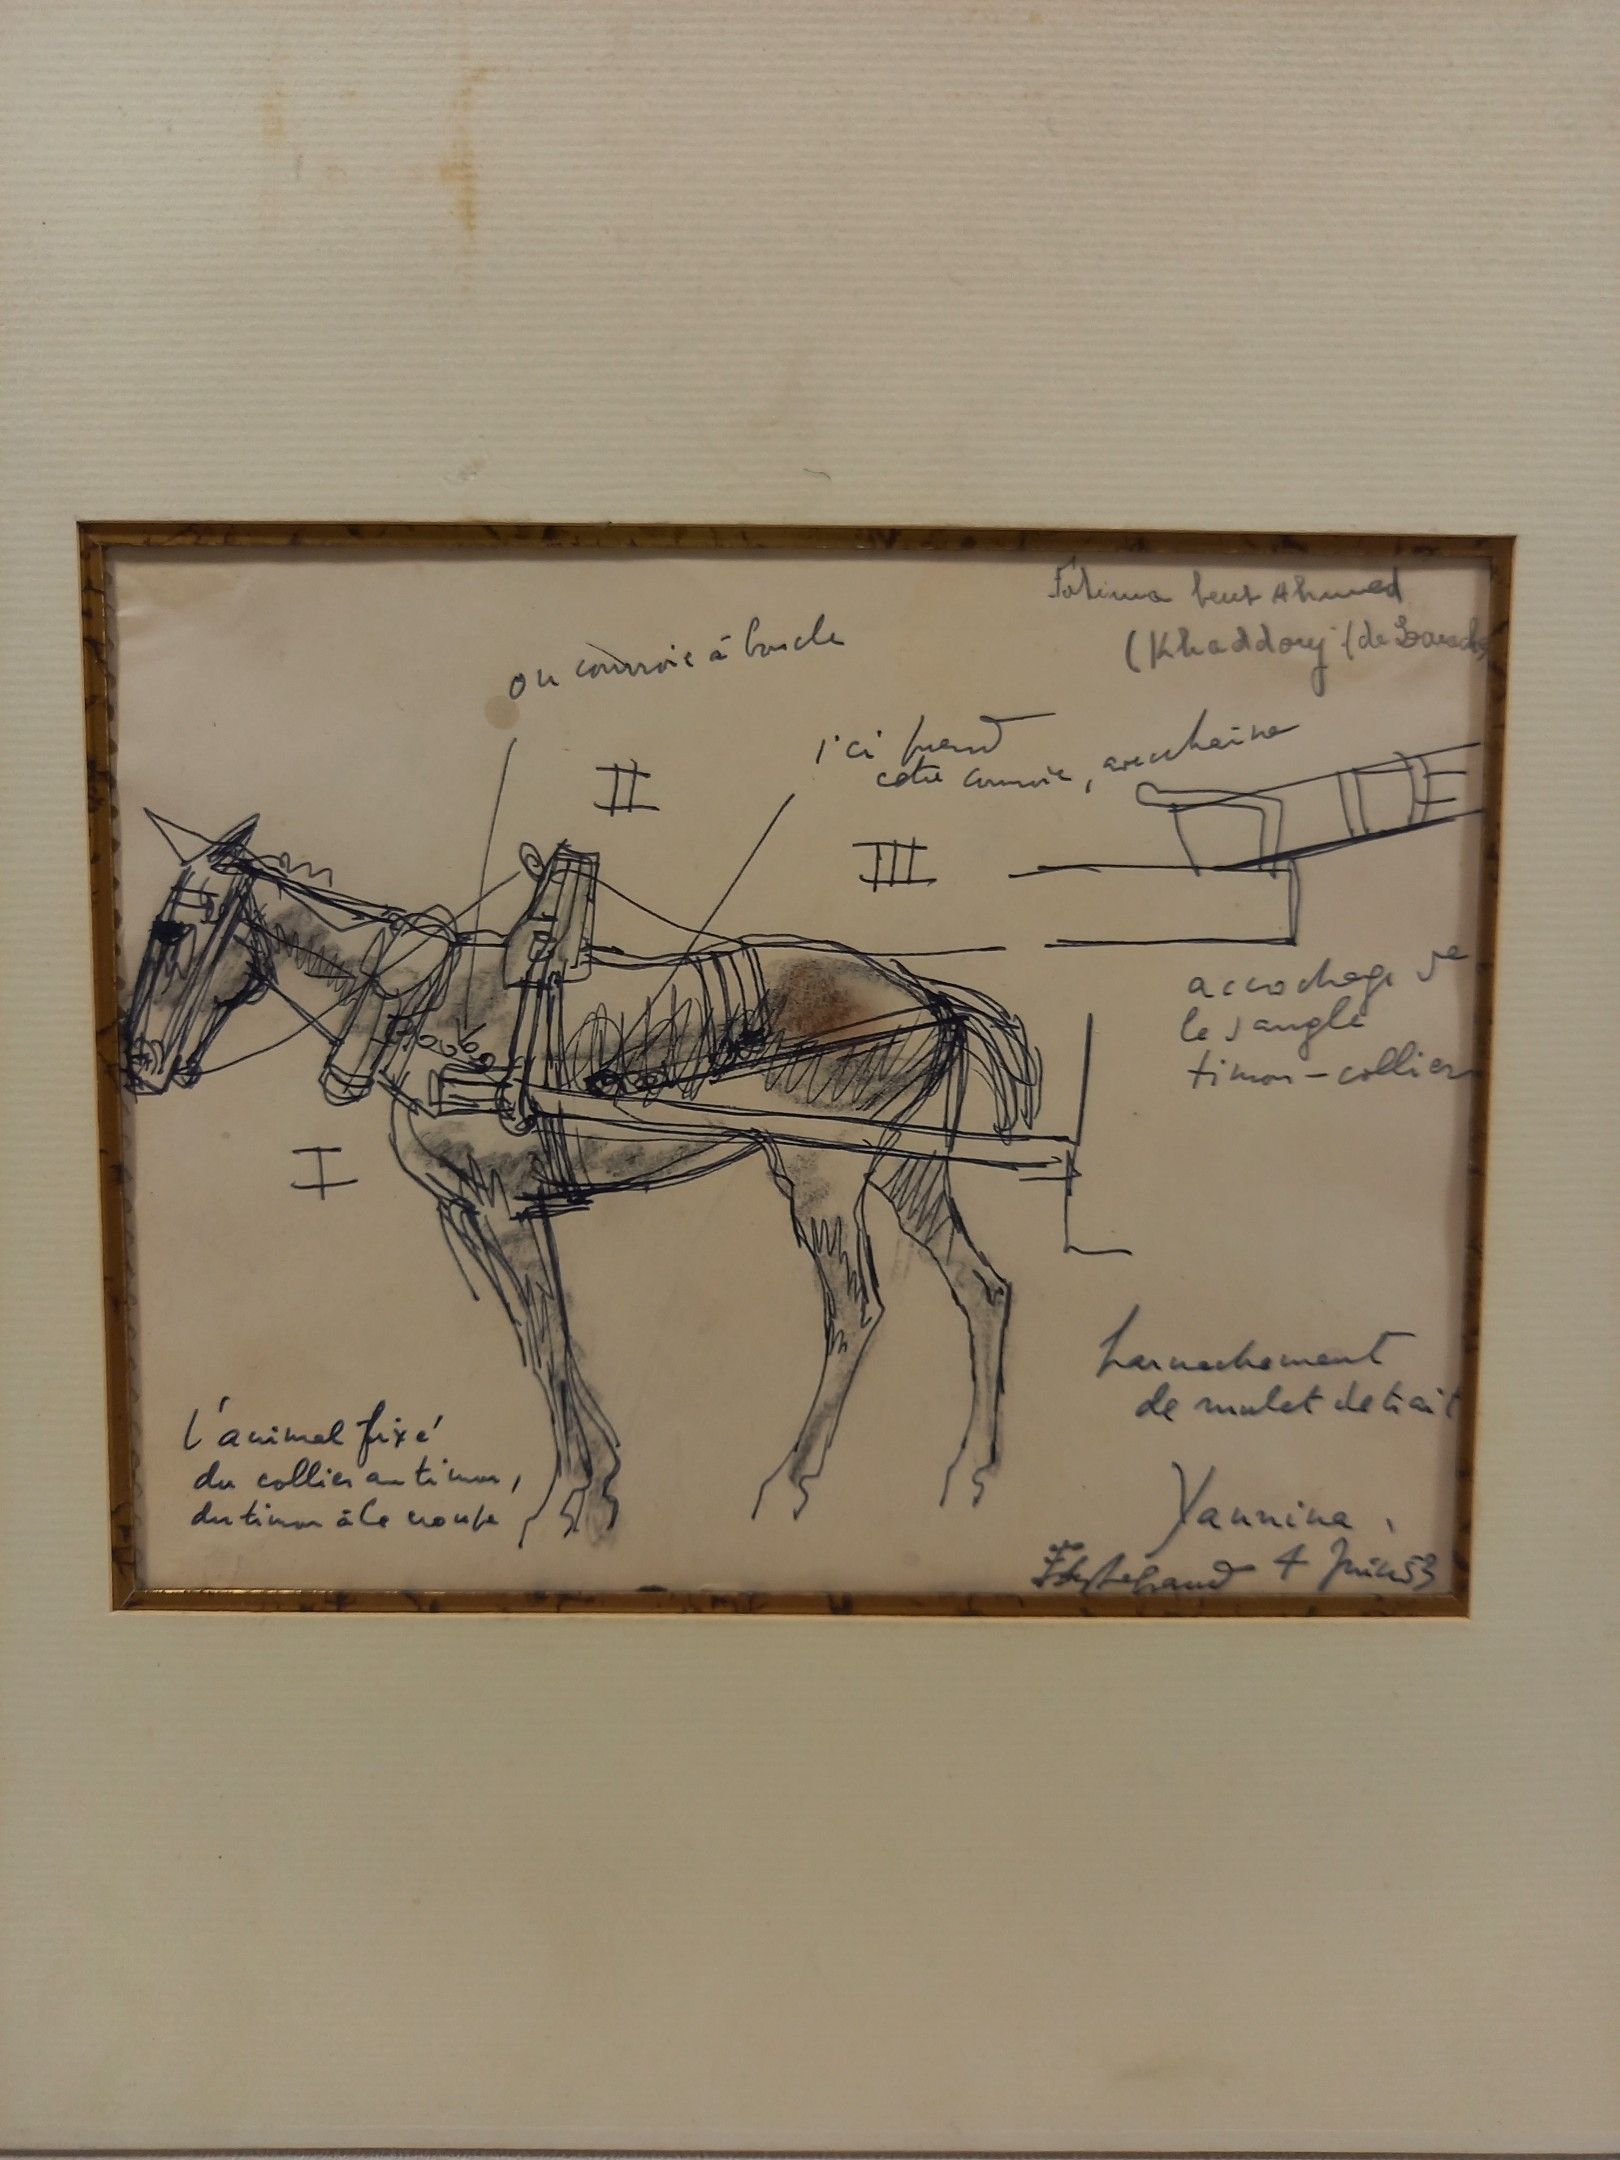 Fatima bent Ahmed
(Khaddouj (de Larache
ou courroie à boucle
ici prend
cette courroie, avec chaine
II
III
accrochage de
la sangle
timon-collier
I
harnachement
de mulet de trait
L'animal fixé
du collier au timon,
du timon à la croupe
Yannina,
4 Juin 53